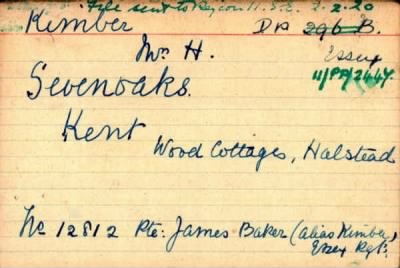 File sent to Regcon H.S.E. 2.2.20
Kimber DA 296 B.
Mr. H. Essex
Sevenoaks. 11/PP/2447.
Kent
Wood Cottages, Halstead
No 12812 Pte: James Baker (alias Kimber)
Essex Rgt: